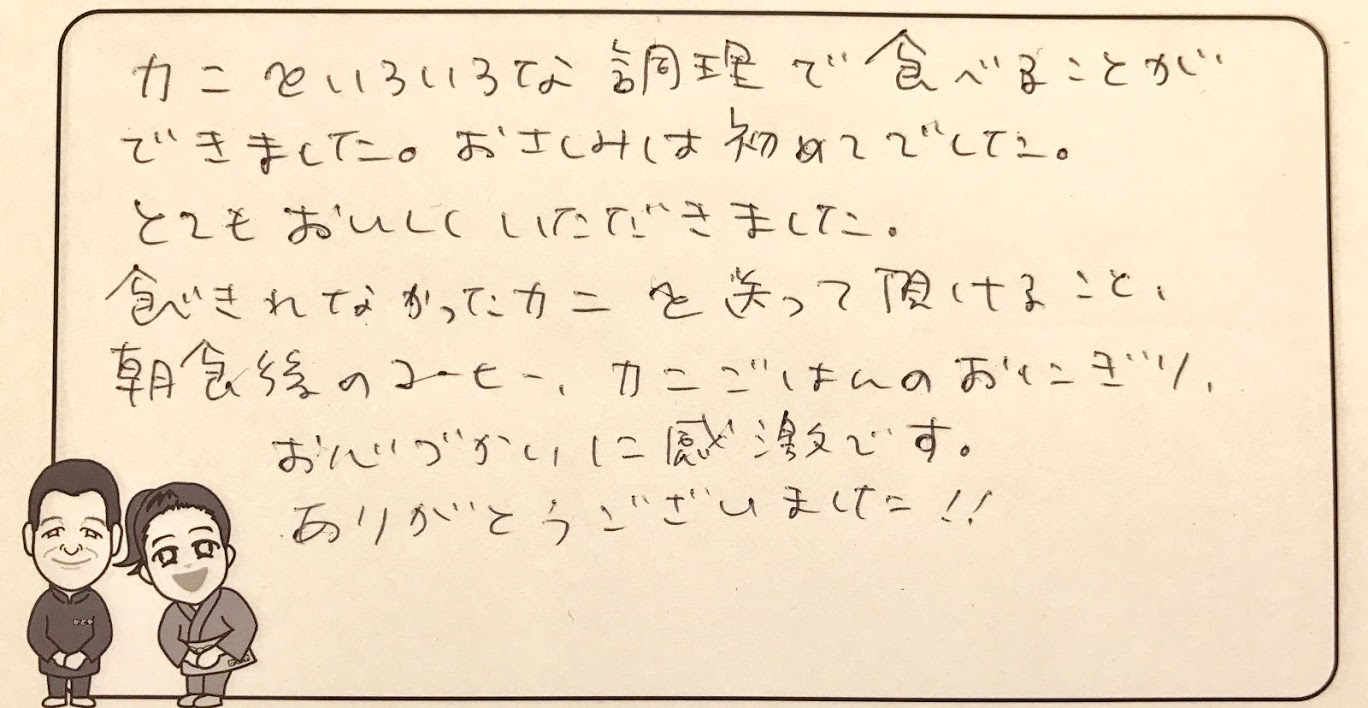 カニをいろいろな調理で食べることが
できました。おさしみは初めてでした。
とてもおいしくいただきました。
食べきれなかったカニを送って頂けること、
朝食後のコーヒー、カニごはんのおにぎり、
おこづかいに感激です。
ありがとうございました!!